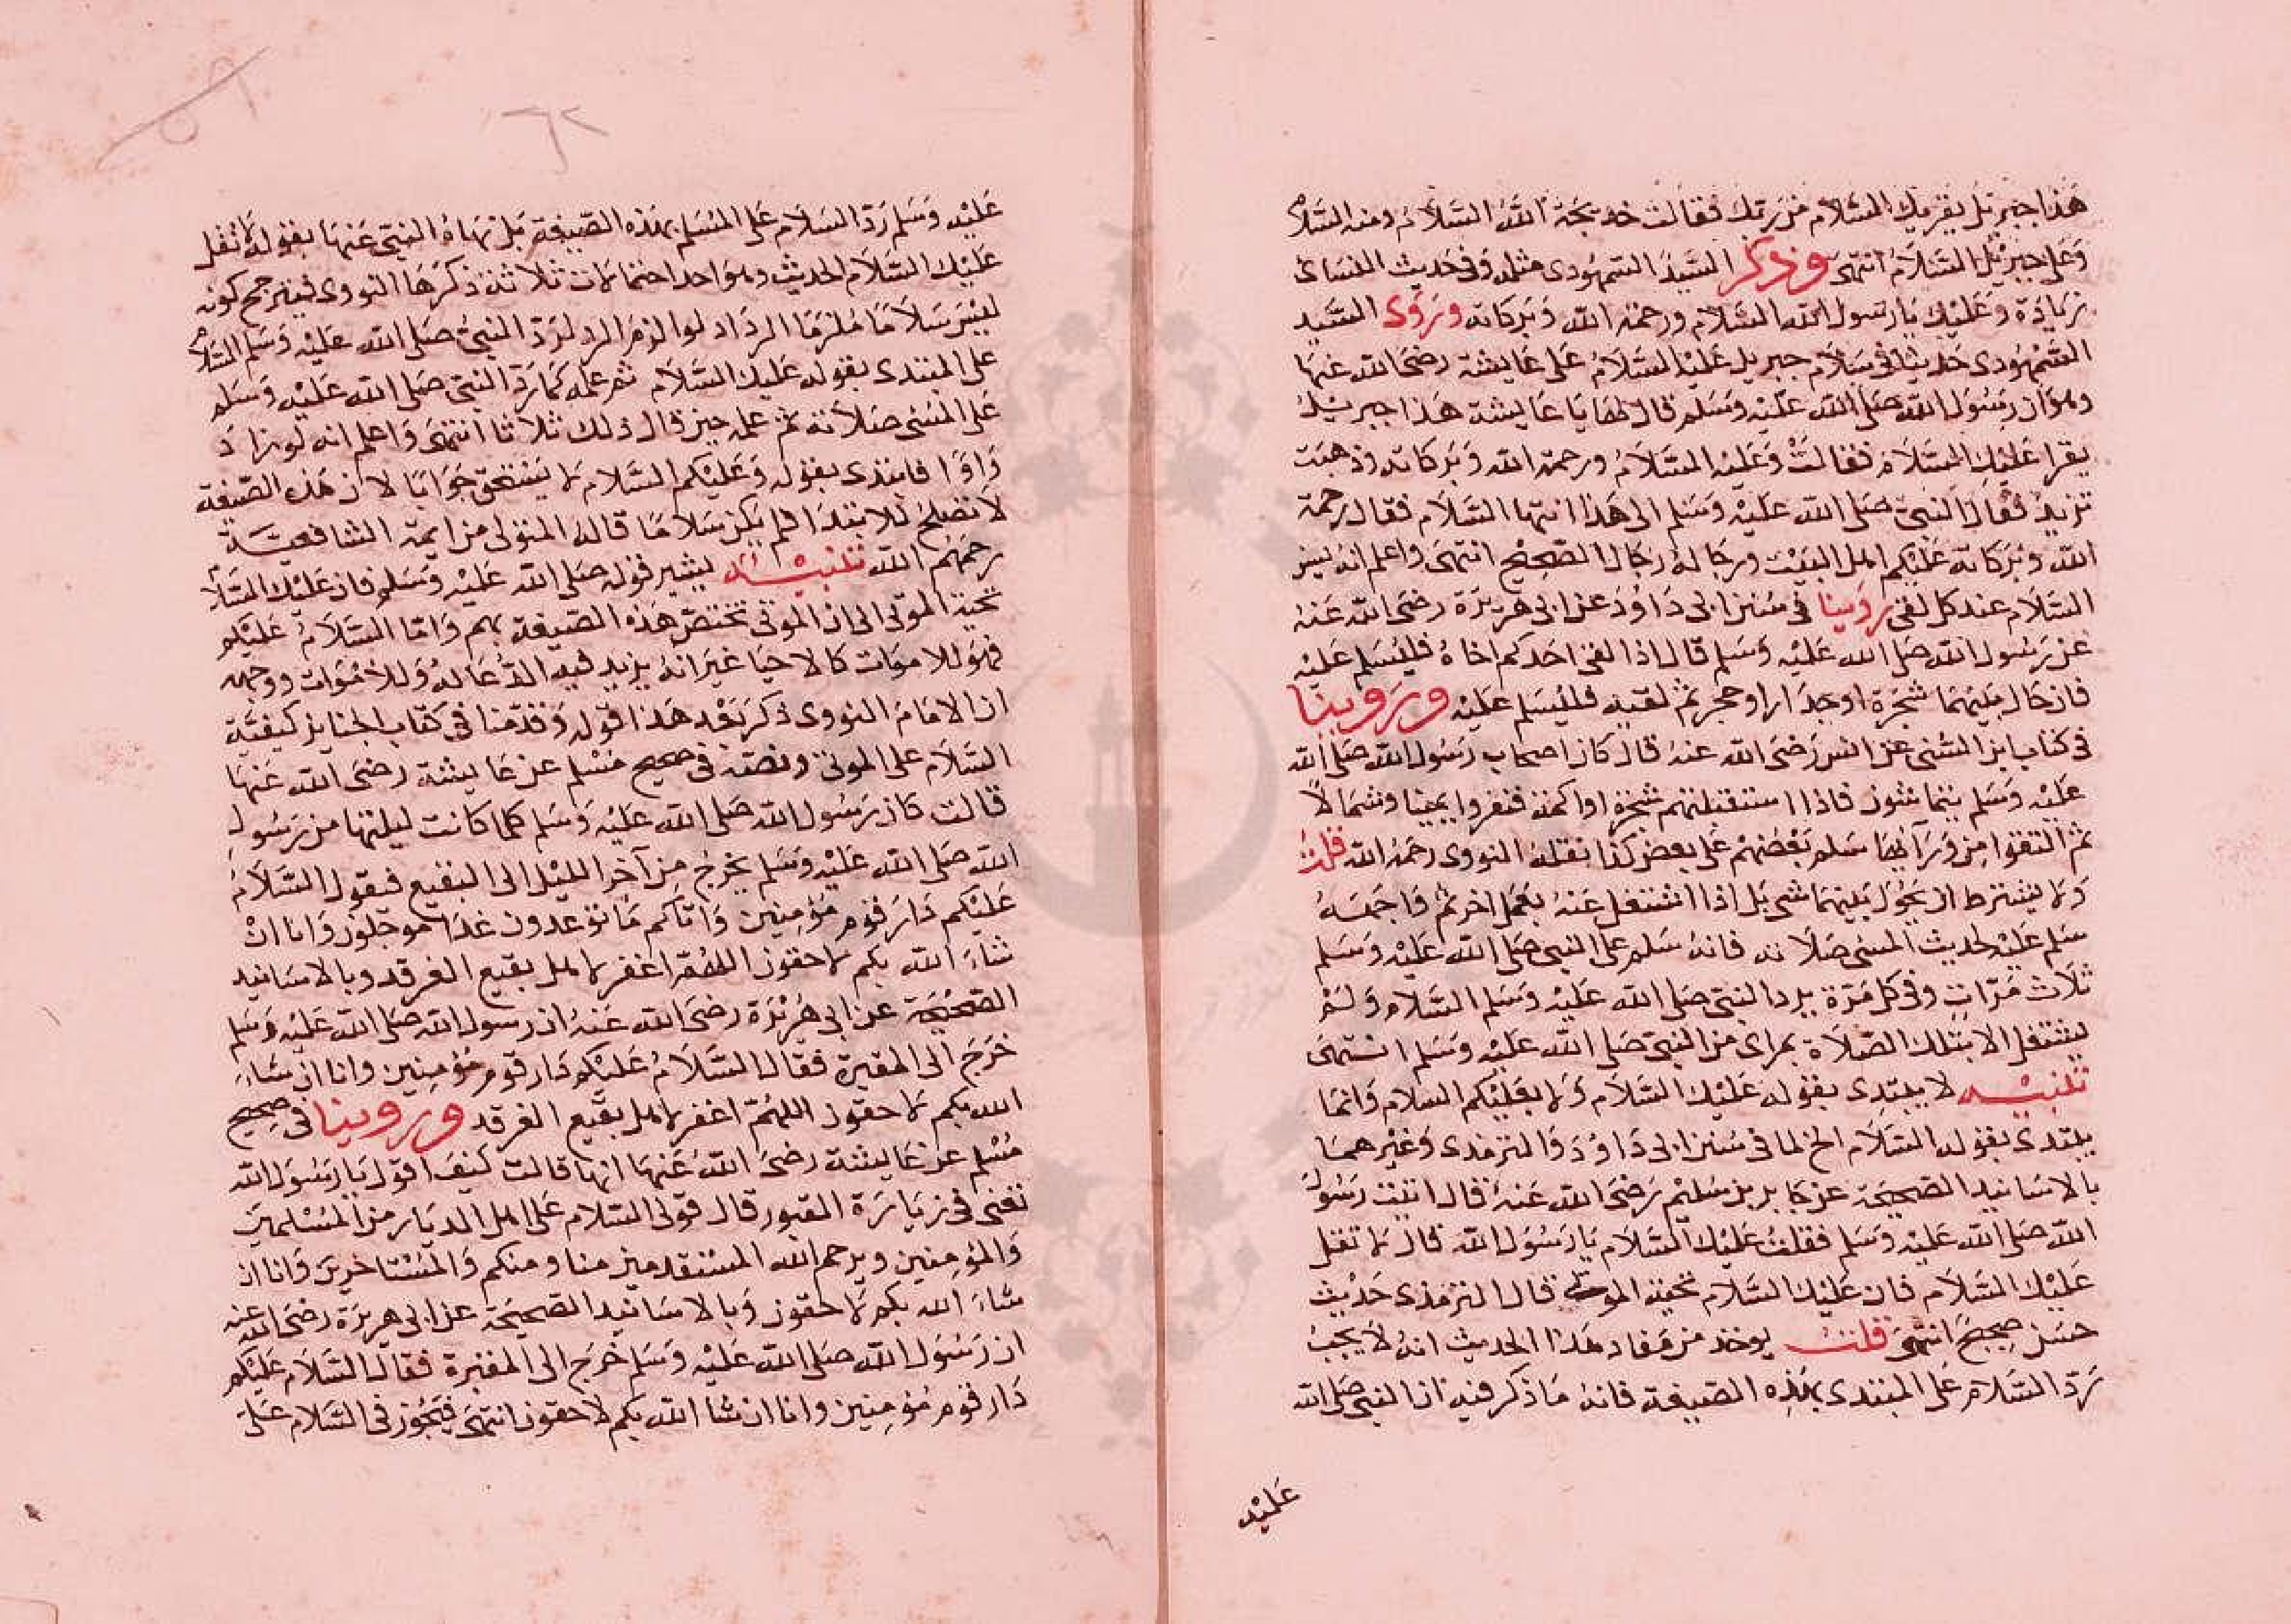 هذا جبريل يقريك السلام من ربك فقالت خديجة الله السلام ومنه السلام
وعلى جبريل السلام انتهى وذكر السيد السمهودى مثله وفى حديث النساى
زيادة وعليك يا رسول الله السلام ورحمة الله وبركاته وروى السيد
السمهودى حديثا فى سلام جبريل عليه السلام على عايشة رضى الله عنها
وهو ان رسول الله صلى الله عليه وسلم قال لها يا عايشة هذا جبريل
يقرا عليك السلام فقالت وعليه السلام ورحمة الله وبركاته وذهبت
تزيد فقال النبى صلى الله عليه وسلم الى هذا انتها السلام فقال رحمة
الله وبركاته عليكم اهل البيت ورجاله رجال الصحيح انتهى واعلم انه ليس
السلام عند كل لقى روينا فى سنن ابى داود عن ابى هريرة رضى الله عنه
عن رسول الله صلى الله عليه وسلم قال اذا لقى احدكم اخاه فليسلم عليه
فان حال بينهما شجرة او جدار او حجر ثم لقيه فليسلم عليه وروينا
فى كتاب ابن السنى عن انس رضى الله عنه قال كان اصحاب رسول الله صلى الله
عليه وسلم يتماشون فاذا استقبلتهم شجرة او اكمة فتفرقوا يمينا وشمالا
ثم التقوا من ورآئها سلم بعضهم على بعض كذا نقله النووى رحمه الله قلت
ولا يشترط ان يحول بينهما شى بل اذا اشتغل عنه بعمل اخر ثم واجهه
سلم عليه لحديث المسى صلاته فانه سلم على النبى صلى الله عليه وسلم
ثلاث مرات وفى كل مرة يرد النبى صلى الله عليه وسلم السلام ولم
يشتغل الا بتلك الصلاة بمراى من النبى صلى الله عليه وسلم انتهى
تنبيه لا يبتدى بقوله عليك السلام ولا بعليكم السلام وانما
يبتدى بقوله السلام الخ لما فى سنن ابى داود والترمذى وغيرهما
بالاسانيد الصحيحة عن جابر بن سليم رضى الله عنه قال اتيت رسول
الله صلى الله عليه وسلم فقلت عليك السلام يا رسول الله قال لا تقل
عليك السلام فان عليك السلام تحية الموتى قال الترمذى حديث
حسن صحيح انتهى قلت يوخذ من مفاد هذا الحديث انه لا يجب
رد السلام على المبتدى بهذه الصيغة فانه ما ذكر فيه ان النبى صلى الله
عليه
عليه وسلم رد السلام على المسلم بهذه الصيغة بل نهاه النبى عنها بقوله لا تقل
عليك السلام الحديث وهو احد احتمالات ثلاثة ذكرها النووى فيترجح كونه
ليس سلاما ملزما الرد اذ لوا لزم الرد لرد النبى صلى الله عليه وسلم السلام
على المبتدى بقوله عليك السلام ثم علمه كما رد النبى صلى الله عليه وسلم
على المسى صلاته ثم علمه حين قال ذلك ثلاثا انتهى واعلم انه لو زاد
واوا فابتدى بقوله وعليكم السلام لا يستحق جوابا لان هذه الصيغة
لا تصلح للابتدا فلم يكن سلاما قاله المتولى من ايمة الشافعية
رحمهم الله تنبيه يشير قوله صلى الله عليه وسلم فان عليك السلام
تحية الموتى الى ان الموتى تختص هذه الصيغة بهم واما السلام عليكم
فهو للاموات كالاحيا غير انه يزيد فيه الدعا له وللاموات ووجهه
ان الامام النووى ذكر بعد هذا قوله وقدمنا فى كتاب الجنايز كيفية
السلام على الموتى ونصه فى صحيح مسلم عن عايشة رضى الله عنها
قالت كان رسول الله صلى الله عليه وسلم كلما كانت ليلتها من رسول
الله صلى الله عليه وسلم يخرج من آخر الليل الى البقيع فيقول السلام
عليكم دار قوم مؤمنين واتاكم ما توعدون غدا موجلون وانا ان
شاء الله بكم لاحقون اللهم اغفر لاهل بقيع الغرقد وبالاسانيد
الصحيحة عن ابى هريرة رضى الله عنه ان رسول الله صلى الله عليه وسلم
خرج الى المقبرة فقال السلام عليكم دار قوم مؤمنين وانا ان شاء
الله بكم لاحقون اللهم اغفر لاهل بقيع الغرقد وروينا فى صحيح
مسلم عن عايشة رضى الله عنها انها قالت كيف اقول يا رسول الله
تعنى فى زيارة القبور قال قولى السلام على اهل الديار من المسلمين
والمؤمنين ويرحم الله المستقدمين منا ومنكم والمستاخرين وانا ان
شاء الله بكم لاحقون وبالاسانيد الصحيحة عن ابى هريرة رضى الله عنه
ان رسول الله صلى الله عليه وسلم خرج الى المقبرة فقال السلام عليكم
دار قوم مؤمنين وانا ان شا الله بكم لاحقون انتهى فيجوز فى السلام على